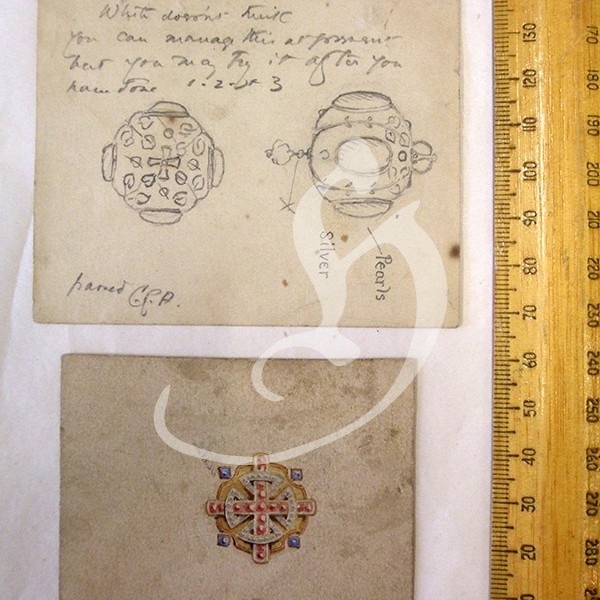 White doesn't think
you can manage this at present
but you may try it after you
have done 1. 2. & 3
Silver
Pearls
passed C.G.P.
130
120
110
100
90
80
70
60
50
40
30
20
170
180
190
200
210
220
230
240
250
260
270
280